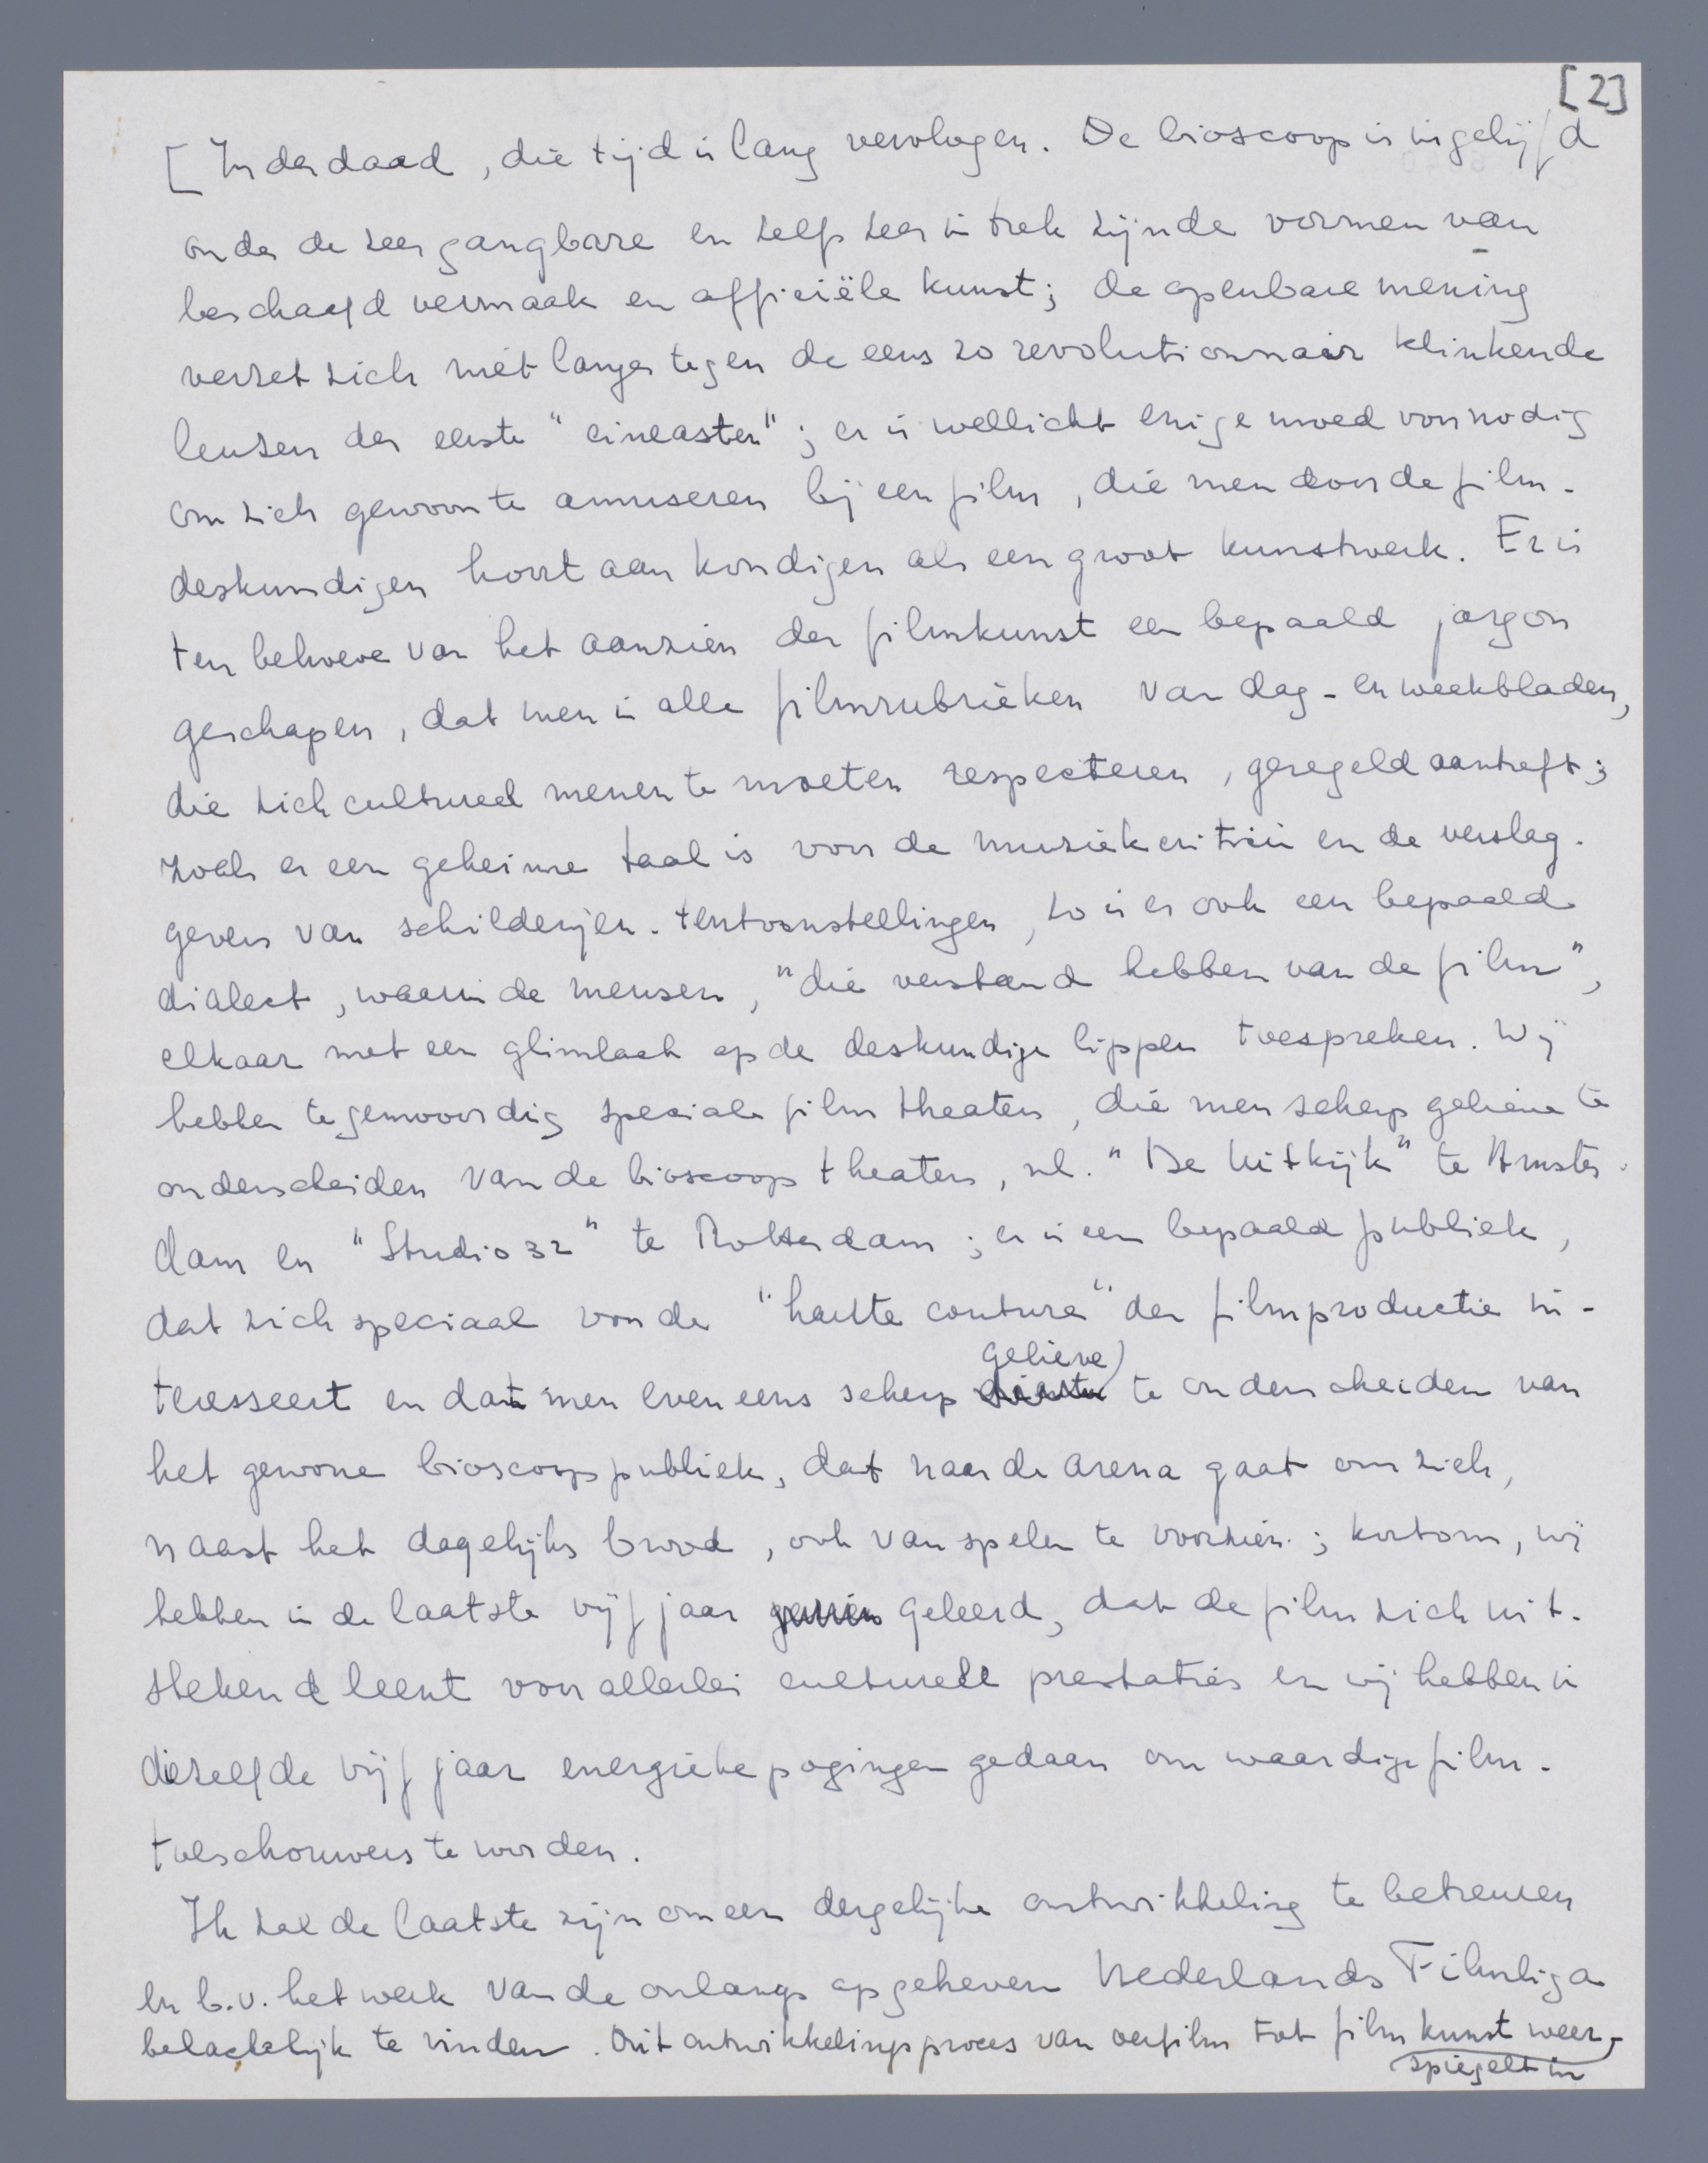 [2]
[ Inderdaad, die tijd is lang vervlogen. De bioscoop is ingelijfd
onder de zeer gangbare en zelfs zeer in trek zijnde vormen van
beschaafd vermaak en officiële kunst; de openbare mening
verzet zich niet langer tegen de eens zo revolutionnair klinkende
leuzen der eerste "cineasten"; er is wellicht enige moed voor nodig
om zich gewoon te amuseren bij een film, die men door de film-
deskundigen hoort aankondigen als een groot kunstwerk. Er is
ten behoeve van het aanzien der filmkunst een bepaald jargon
geschapen, dat men in alle filmrubrieken van dag- en weekbladen,
die zich cultureel menen te moeten respecteren, geregeld aantreft;
zoals er een geheime taal is voor de muziekcritici en de verslag-
gevers van schilderijen-tentoonstellingen, zo is er ook een bepaald
dialect, waarin de mensen, "die verstand hebben van de film",
elkaar met een glimlach op de deskundige lippen toespreken. Wij
hebben tegenwoordig speciale filmtheaters, die men scherp gelieve te
onderscheiden van de bioscooptheaters, nl. "De Uitkijk" te Amster-
dam en "Studio 32" te Rotterdam; er is een bepaald publiek,
dat zich speciaal voor de "haute couture" der filmproductie in-
teresseert en dat men eveneens scherp gelieve te onderscheiden van
het gewone bioscooppubliek, dat naar de arena gaat om zich,
naast het dagelijks brood, ook van spelen te voorzien; kortom, wij
hebben in de laatste vijf jaar geleerd, dat de film zich uit-
stekend leent voor allerlei culturele prestaties en wij hebben in
diezelfde vijf jaar energieke pogingen gedaan om waardige film-
toeschouwers te worden.
Ik zal de laatste zijn om een dergelijke ontwikkeling te betreuren
en b.v. het werk van de onlangs opgeheven Nederlands Filmliga
belachelijk te vinden. Dit ontwikkelingsproces van oerfilm tot filmkunst weer-
spiegelt in